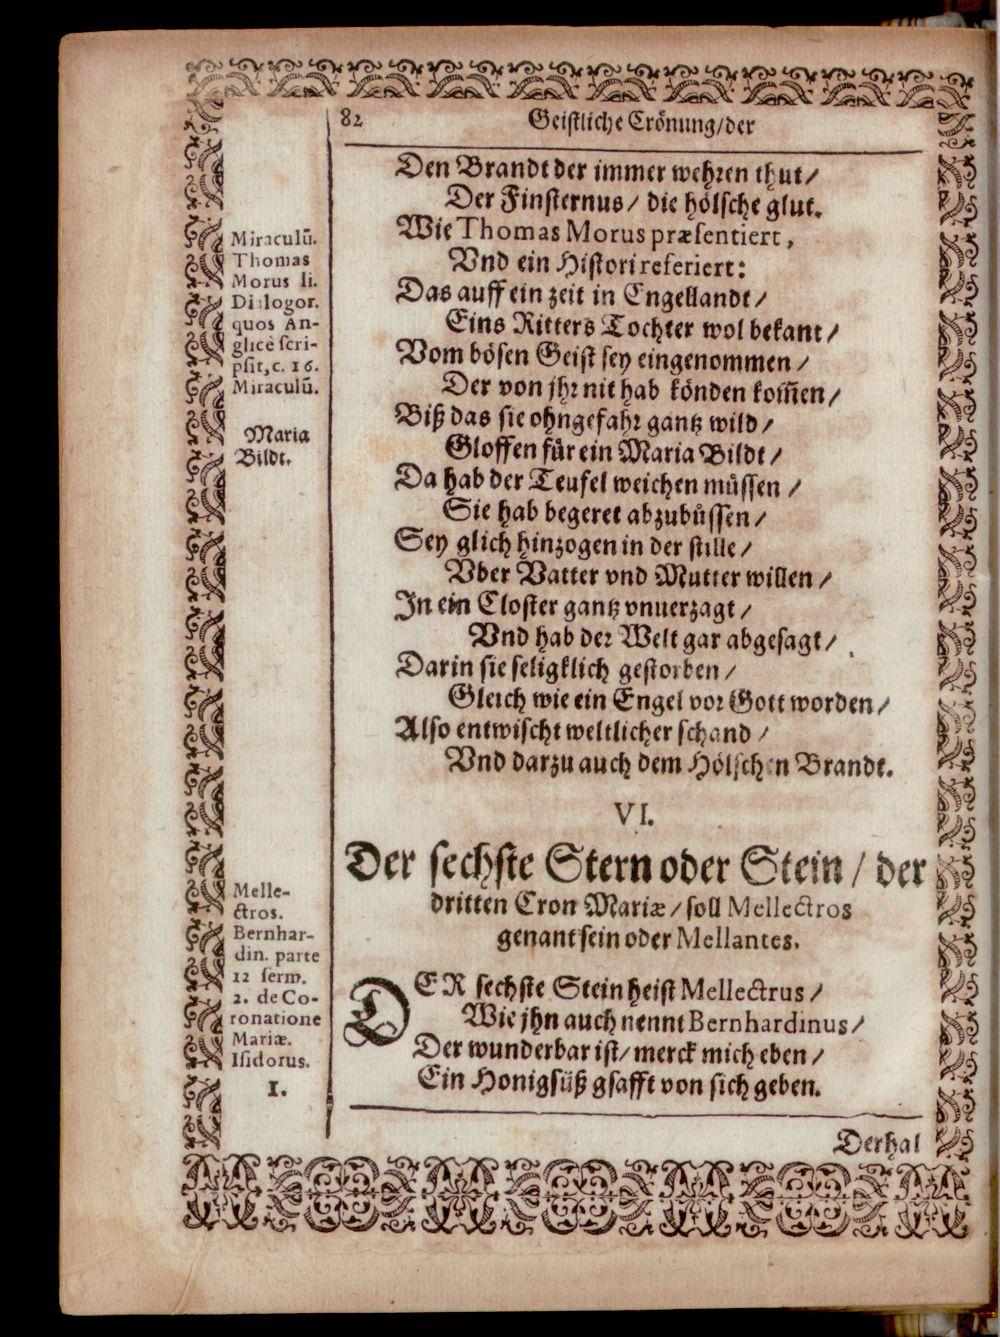 82 Geistliche Crönung/der
Den Brandt der immer wehren thut/
Der Finsternus/ die hölsche glut.
Wie Thomas Morus præsentiert,
Vnd ein Histori referiert:
Das auff ein zeit in Engellandt/
Eins Ritters Tochter wol bekant/
Vom bösen Geist sey eingenommen/
Der von jhr nit hab könden kom̃en/
Biß das sie ohngefahr gantz wild/
Gloffen für ein Maria Bildt/
Da hab der Teufel weichen müssen/
Sie hab begeret abzubüssen/
Sey glich hinzogen in der stille/
Vber Vatter vnd Mutter willen/
In ein Closter gantz vnuerzagt/
Vnd hab der Welt gar abgesagt/
Darin sie seligklich gestorben/
Gleich wie ein Engel vor Gott worden/
Also entwischt weltlicher schand/
Vnd darzu auch dem Hölschen Brandt.
Miraculũ.
Thomas
Morus li.
Dialogor.
quos An-
glicè scri-
psit, c. 16.
Miraculũ.
Maria
Bildt.
VI.
Der sechste Stern oder Stein/ der
dritten Cron Mariæ/ soll Mellectros
genant sein oder Mellantes.
DER sechste Stein heist Mellectrus/
Wie jhn auch nennt Bernhardinus/
Der wunderbar ist/ merck mich eben/
Ein Honigsüß gsafft von sich geben.
Melle-
ctros.
Bernhar-
din. parte
12 serm.
2. de Co-
ronatione
Mariæ.
Isidorus.
1.
Derhal